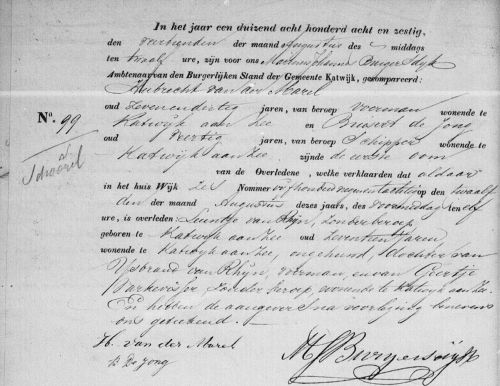 In het jaar een duizend acht honderd acht en zestig,
den veertienden der maand Augustus des middags
ten twaalf ure, zijn voor ons
Ambtenaar van den Burgerlijken Stand der Gemeente Katwijk, gecompareerd:
Huibrecht van der Marel
oud zevenendertig jaren, van beroep voerman wonende te
No. 99
Katwijk aan Zee en de Jong
oud veertig jaren, van beroep Schipper wonende te
Katwijk aan Zee zijnde de eerste oom
van de Overledene, welke verklaarden dat aldaar
in het huis Wijk zes Nommer vijfhonderd op den twaalf
den der maand Augustus dezes jaars, des voormiddag ten elf
ure, is overleden: van Rhijn, zonder beroep,
geboren te Katwijk aan Zee oud zeventien jaren,
wonende te Katwijk aan Zee, ongehuwd, dochter van
IJsbrand van Rhijn, voerman, en van Geertje
zonder beroep, wonende te Katwijk aan Zee
En hebben de aangevers na voorlezing benevens
ons geteekend.
H. van der Marel
de Jong